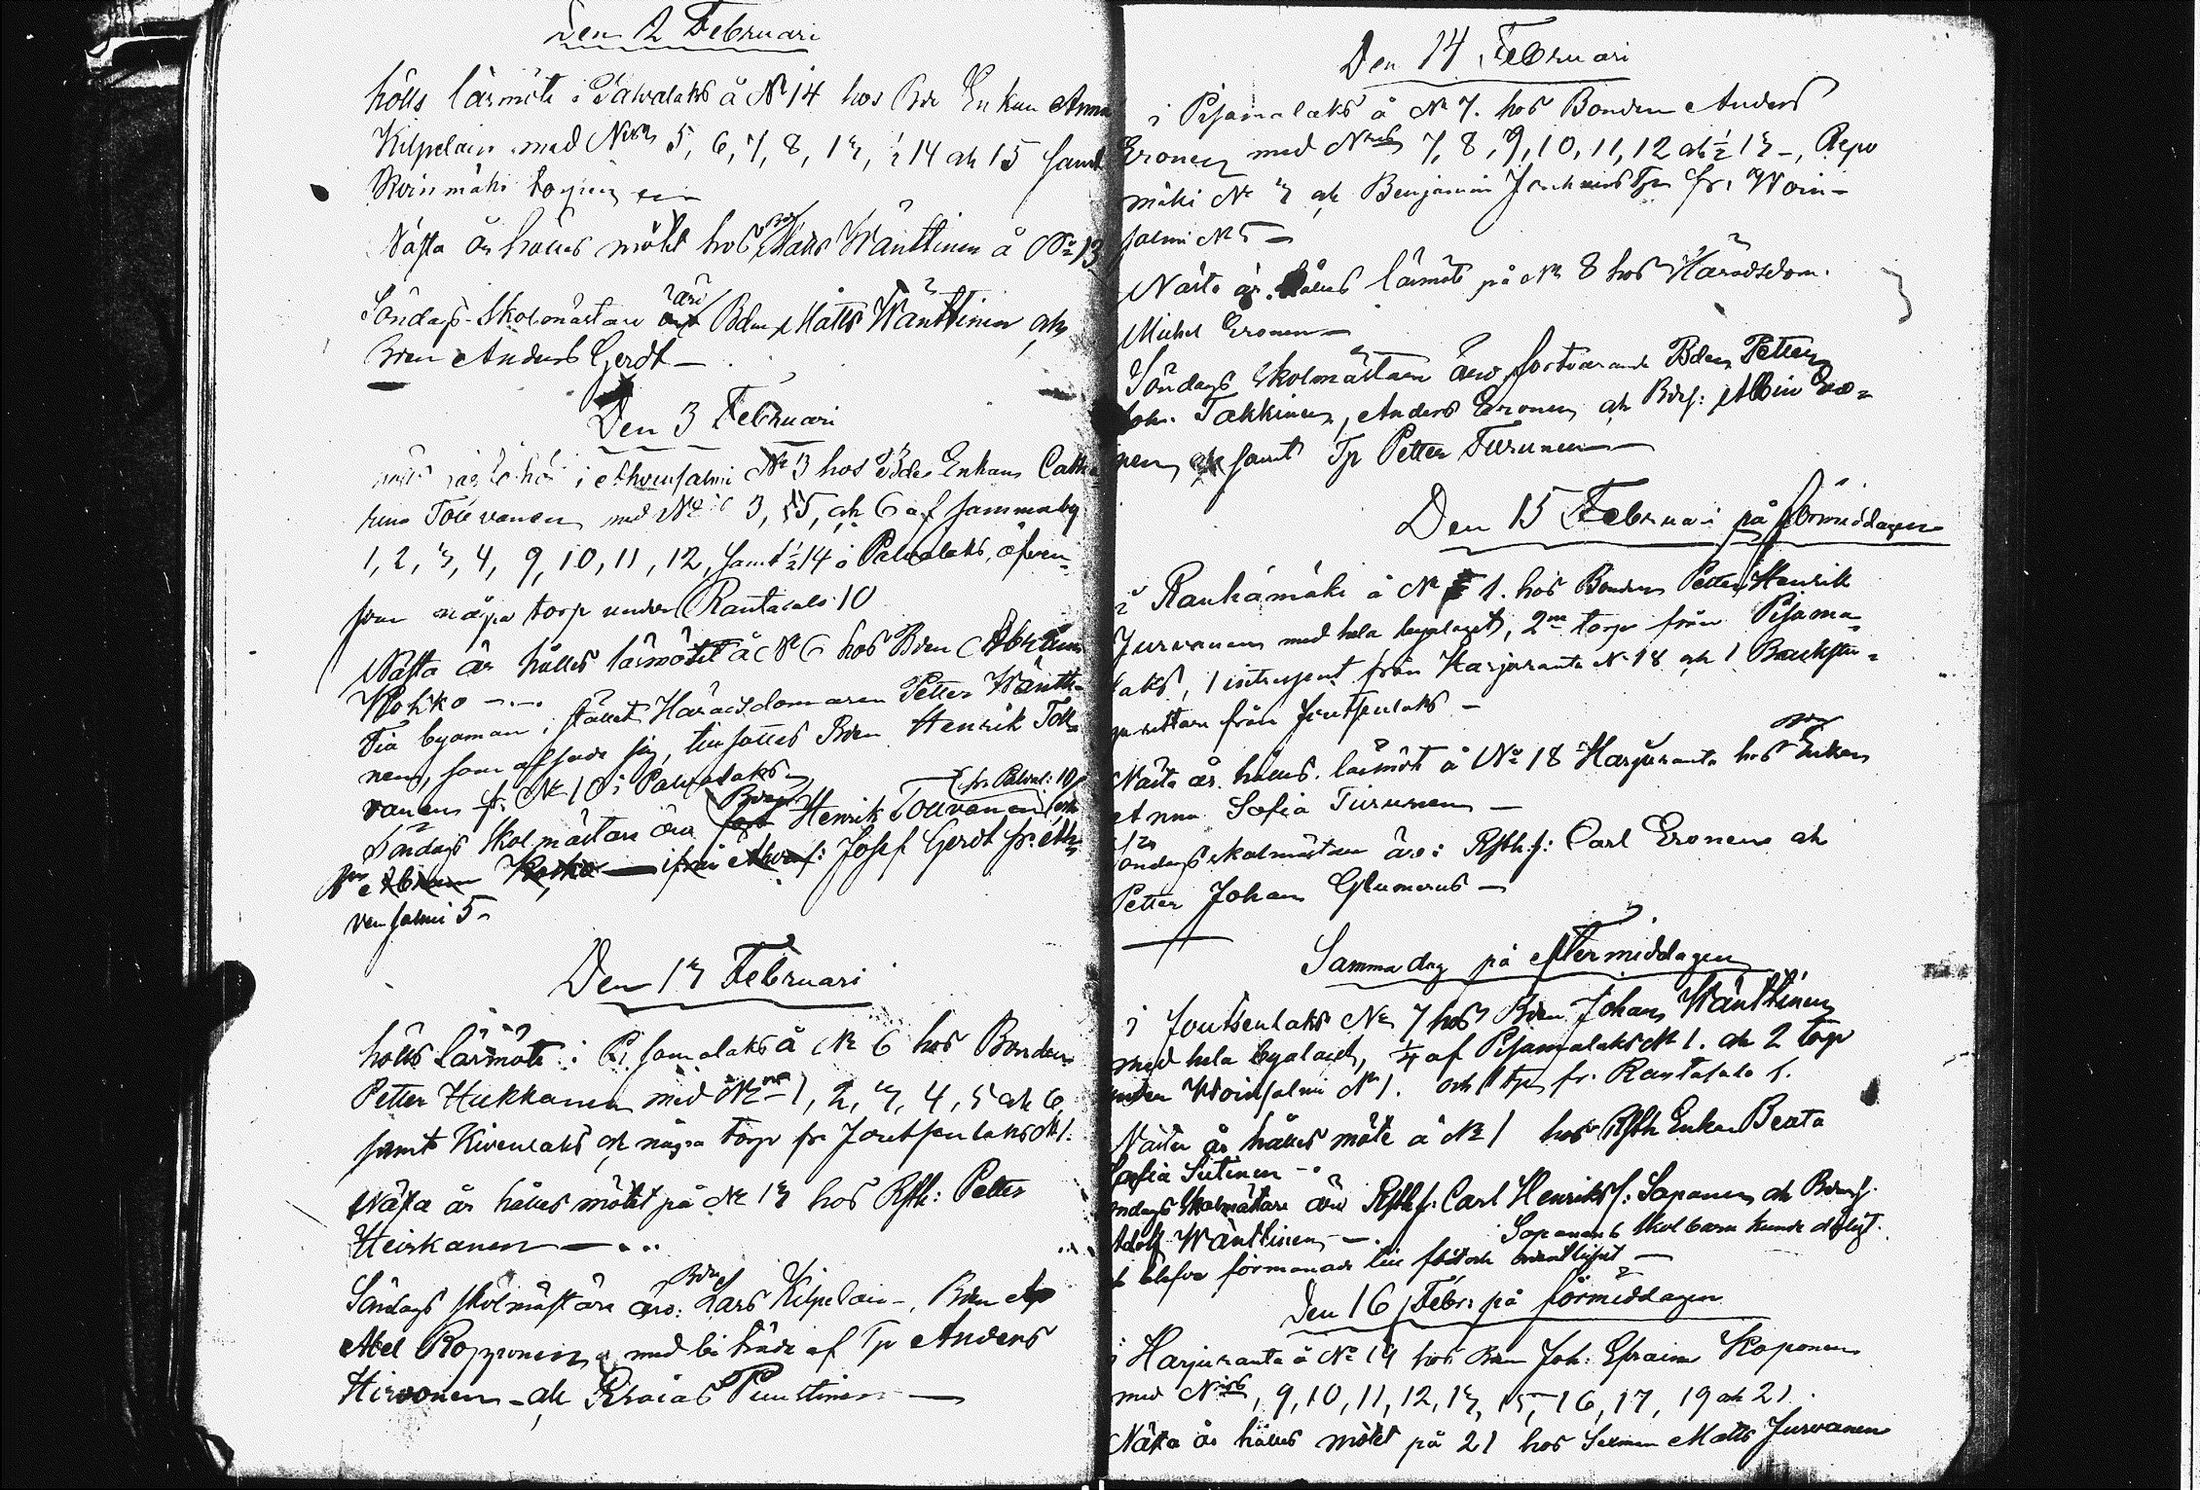 Den 2 Februari
hölls läsmöte i Palvalaks å No 14 hos Bde Enkan Anna
Kilpeläin med Nris 5, 6, 7, 8, 13, ½ 14 ah 15 samt
Koinmäki torpien
Nästa år hålles mötet hos Bdn Matts Wänttinen å No 13
Söndags-Skolmästare äro Bdn Matts Wänttinen ah
Bden Anders Gerdt —
Den 3 Februari
i Ahvensalmi No 3 hos Bde Enkan Catha
rina Tolvanen med No 3, 5, ah 6 af samma by
1, 2, 3, 4, 9, 10, 11, 12, samt ½ 14 i Palvalaks, äfven-
som några torp under Rantasalo 10
Nästa år hålles läsmötet å No 6 hos Bden Abraham
Kokko —
Till byaman i stället Häradsdomaren Petter Wäntti-
nen, som afsade sig, tillsattes Bden Henrik Toll-
vanen fr. No 10 i Palvalaks
(fr. Palval: 10)
Söndags Skolmästare äro Henrik Tollvanen och
Abram Kokko — ifrån Ahvens: Josef Gerdt fr. Ah-
vensalmi 5
Den 13 Februari
hölls läsmöte i Pisamalaks å No 6 hos Bonden
Petter Hukkanen med No 1, 2, 3, 4, 5 ah 6,
samt Kivenlaks ah några torp fr Joutsenlaks No 1.
Nästa år hålles mötet på No 13 hos Rsth: Petter
Heiskanen —
Söndags skolmästare äro: Bdn Lars Kilpeläin —, Bden
Abel Ropponen, med biträde af Tp Anders
Hirvonen — ah Puustinen —
Den 14 Februari
i Pisamalaks å No 7. hos Bonden Anders
Eronen med Nris 7, 8, 9, 10, 11, 12 ah ½ 13 —, Repo
mäki No 3 ah Benjamin Tp fr. Woin-
salmi No 5 —
Nästa år hålles läsmöte på No 8 hos Häradsdom.
Michel Eronen —
Söndags Skolmästare äro fortvarande Bden Petter
Joh. Takkinen, Anders Eronen ah Bdes: Albin Ero-
nen samt Tp Petter Turunen —
Den 15 Februari på förmiddagen
i Rauhamäki å No 1. hos Bonden Petter Henrik
Jurvanen med hela byalaget, 2ne torp från Pisama-
laks, 1 intressent från Harjuranta No 18 ah 1 Backstu-
gusittare från Joutsenlaks —
Nästa år hålles läsmöte å No 18 Harjuranta hos Bde Enkan
Sofia Turunen —
Söndagsskolmästare äro: Rsth.f: Carl Eronen ah
Petter Johan Glumerus —
Samma dag på eftermiddagen
i Joutsenlaks No 7 hos Bden Johan Wänttinen
med hela byalaget, ¼ af Pisamalaks No 1. ah 2 torp
under Woinsalmi No 1. och 1 tp fr. Rantasalo 1.
Nästa år hålles möte å No 1 hos Rsth Enkan Beata
Sofia Sutinen —
ndags Skolmästare äro Rsth.f. Carl Henriks: Sapanen ah Bdes:
Adolf Wänttinen —. Sapanens Skolbarn kunde dåligt.
elefver förmanade till flit och ordentlighet —
Den 16 Febr: på förmiddagen
i Harjuranta å No 19 hos Bden Joh: Efraim Koponen
med Nris, 9, 10, 11, 12, 13, 15, 16, 17, 19 ah 21.
Nästa år hålles mötet på 21 hos Sexman Matts Jurvanen